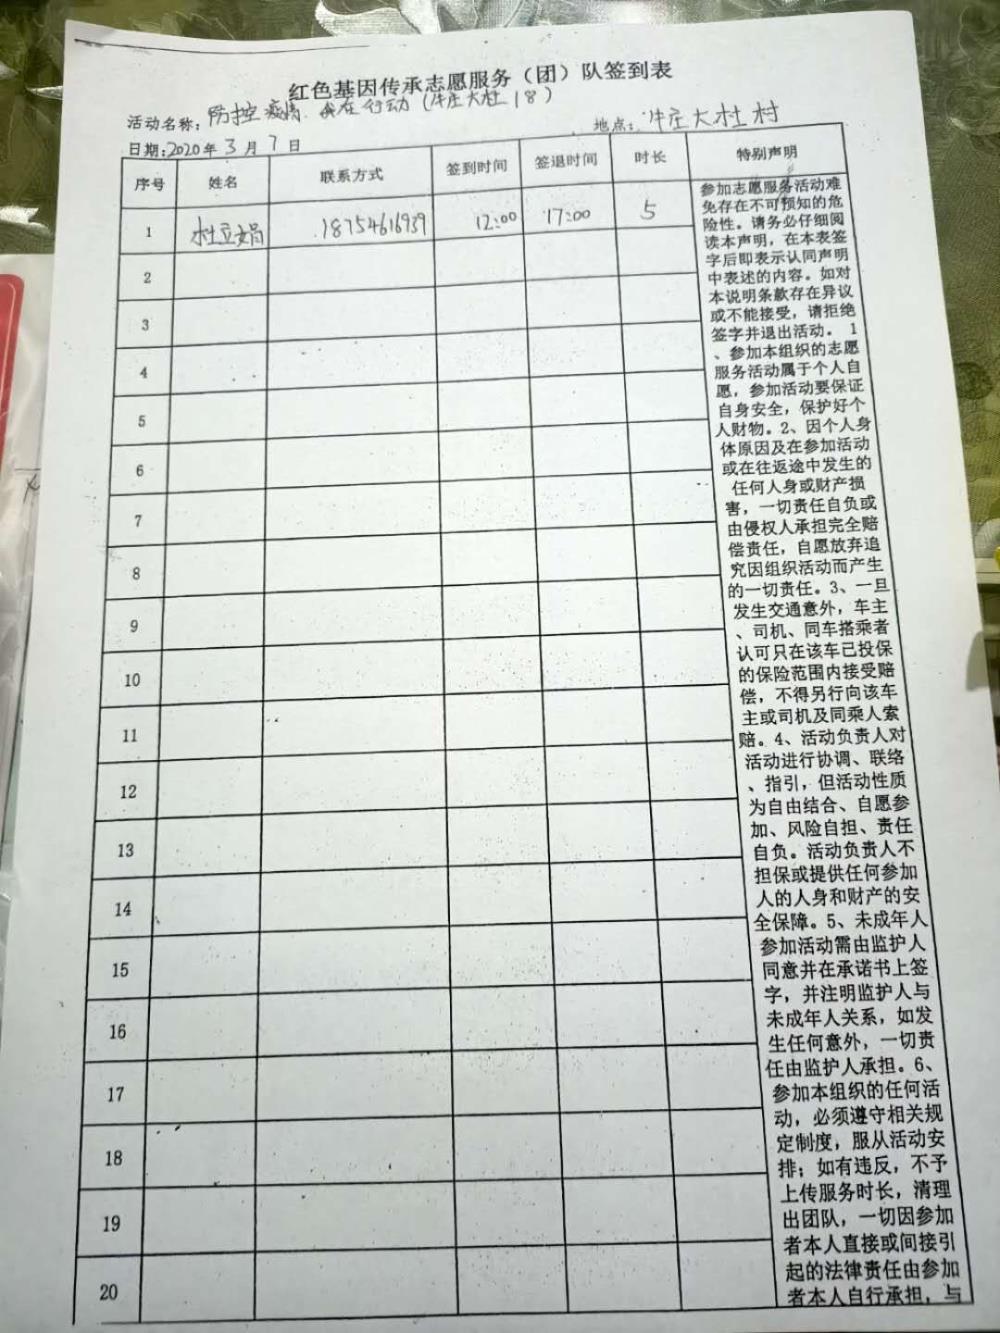 红色基因传承志愿服务（团）队签到表
活动名称：防控疫情 我在行动（牛庄大杜18） 地点：牛庄大杜村
日期：2020年3月7日
序号 姓名 联系方式 签到时间 签退时间 时长 特别声明
1 杜豆娟 18754616939 12:00 17:00 5
2
3
4
5
6
7
8
9
10
11
12
13
14
15
16
17
18
19
20
参加志愿服务活动难
免存在不可预知的危
险性。请务必仔细阅
读本声明，在本表签
字后即表示认同声明
中表述的内容。如对
本说明条款存在异议
或不能接受，请拒绝
签字并退出活动。 1
、参加本组织的志愿
服务活动属于个人自
愿，参加活动要保证
自身安全，保护好个
人财物。2、因个人身
体原因及在参加活动
或在往返途中发生的
任何人身或财产损
害，一切责任自负或
由侵权人承担完全赔
偿责任，自愿放弃追
究因组织活动而产生
的一切责任。3、一旦
发生交通意外，车主
、司机、同车搭乘者
认可只在该车已投保
的保险范围内接受赔
偿，不得另行向该车
主或司机及同乘人索
赔。4、活动负责人对
活动进行协调、联络
、指引，但活动性质
为自由结合、自愿参
加、风险自担、责任
自负。活动负责人不
担保或提供任何参加
人的人身和财产的安
全保障。5、未成年人
参加活动需由监护人
同意并在承诺书上签
字，并注明监护人与
未成年人关系，如发
生任何意外，一切责
任由监护人承担。6、
参加本组织的任何活
动，必须遵守相关规
定制度，服从活动安
排；如有违反，不予
上传服务时长，清理
出团队，一切因参加
者本人直接或间接引
起的法律责任由参加
者本人自行承担，与